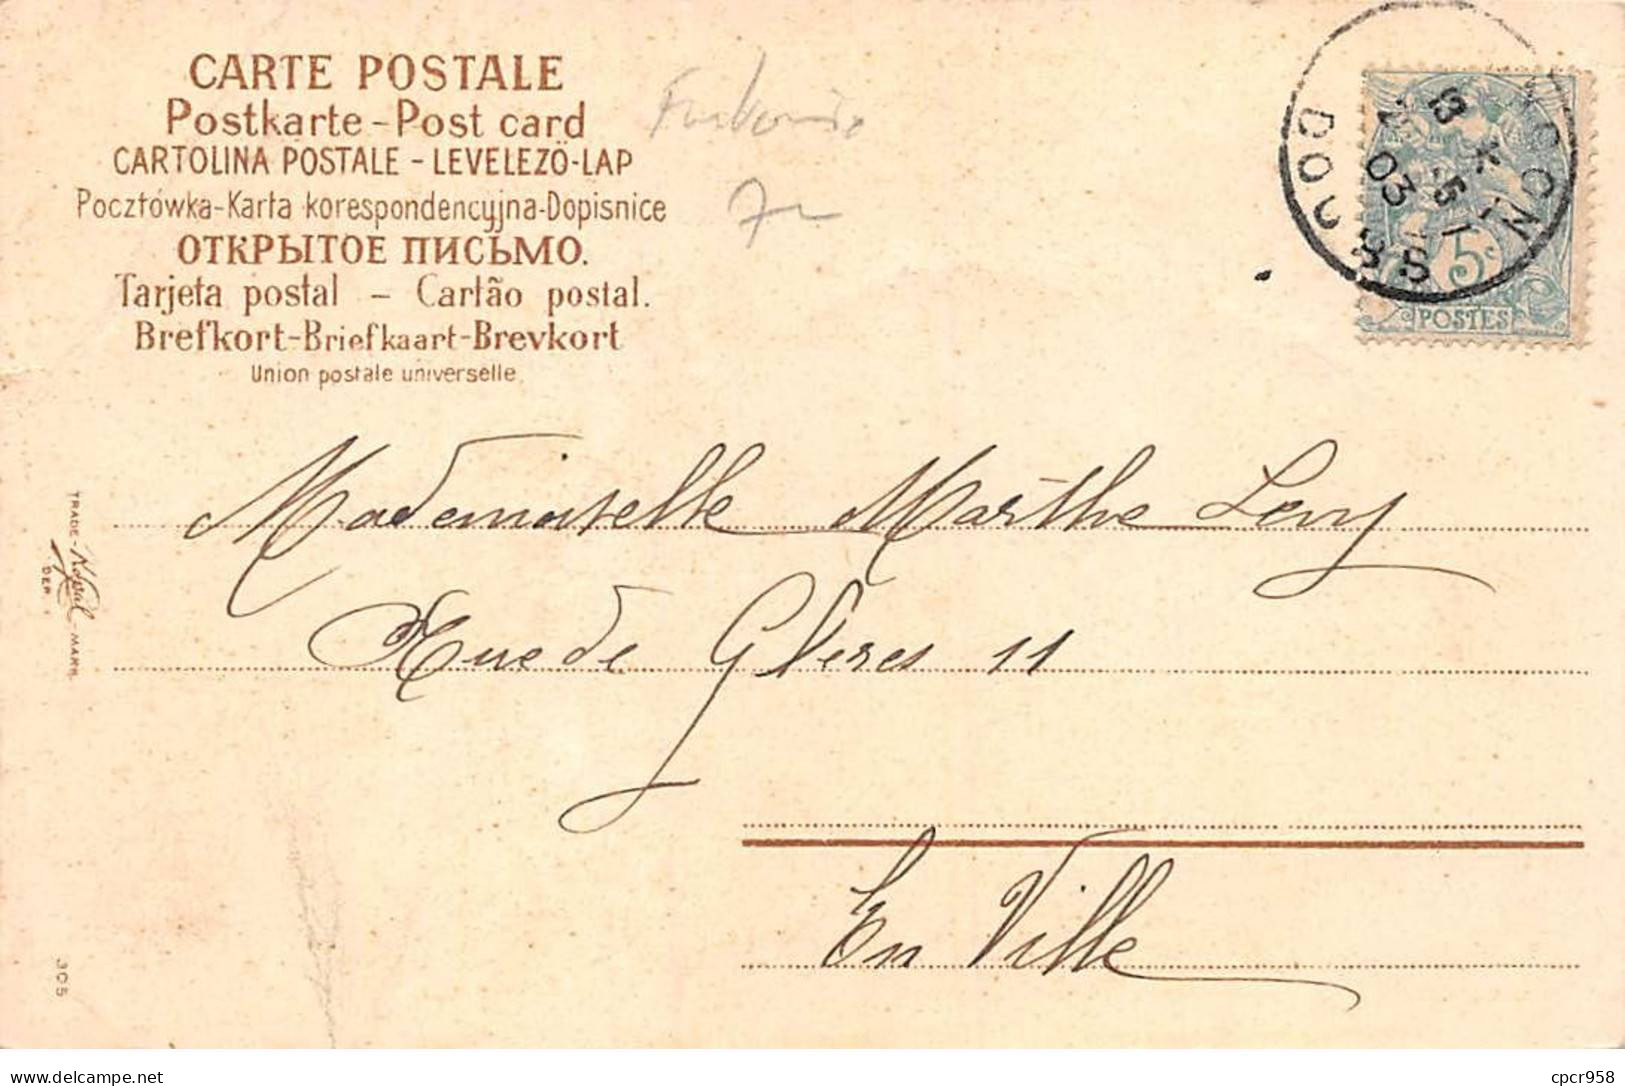 CARTE POSTALE
Postkarte - Post card
CARTOLINA POSTALE - LEVELEZÖ-LAP
Pocztówka-Karta korespondencyjna-Dopisnice
ОТКРЫТОЕ ПИСЬМО.
Tarjeta postal - Cartão postal.
Brefkort-Briefkaart-Brevkort
Union postale universelle
7-
13
5
03
5c
POSTES
Mademoiselle Marthe Levy
Rue de Gléres 11
En Ville
TRADE- Royal -MARK
DEP.
305
delcampe.net
cpcr958